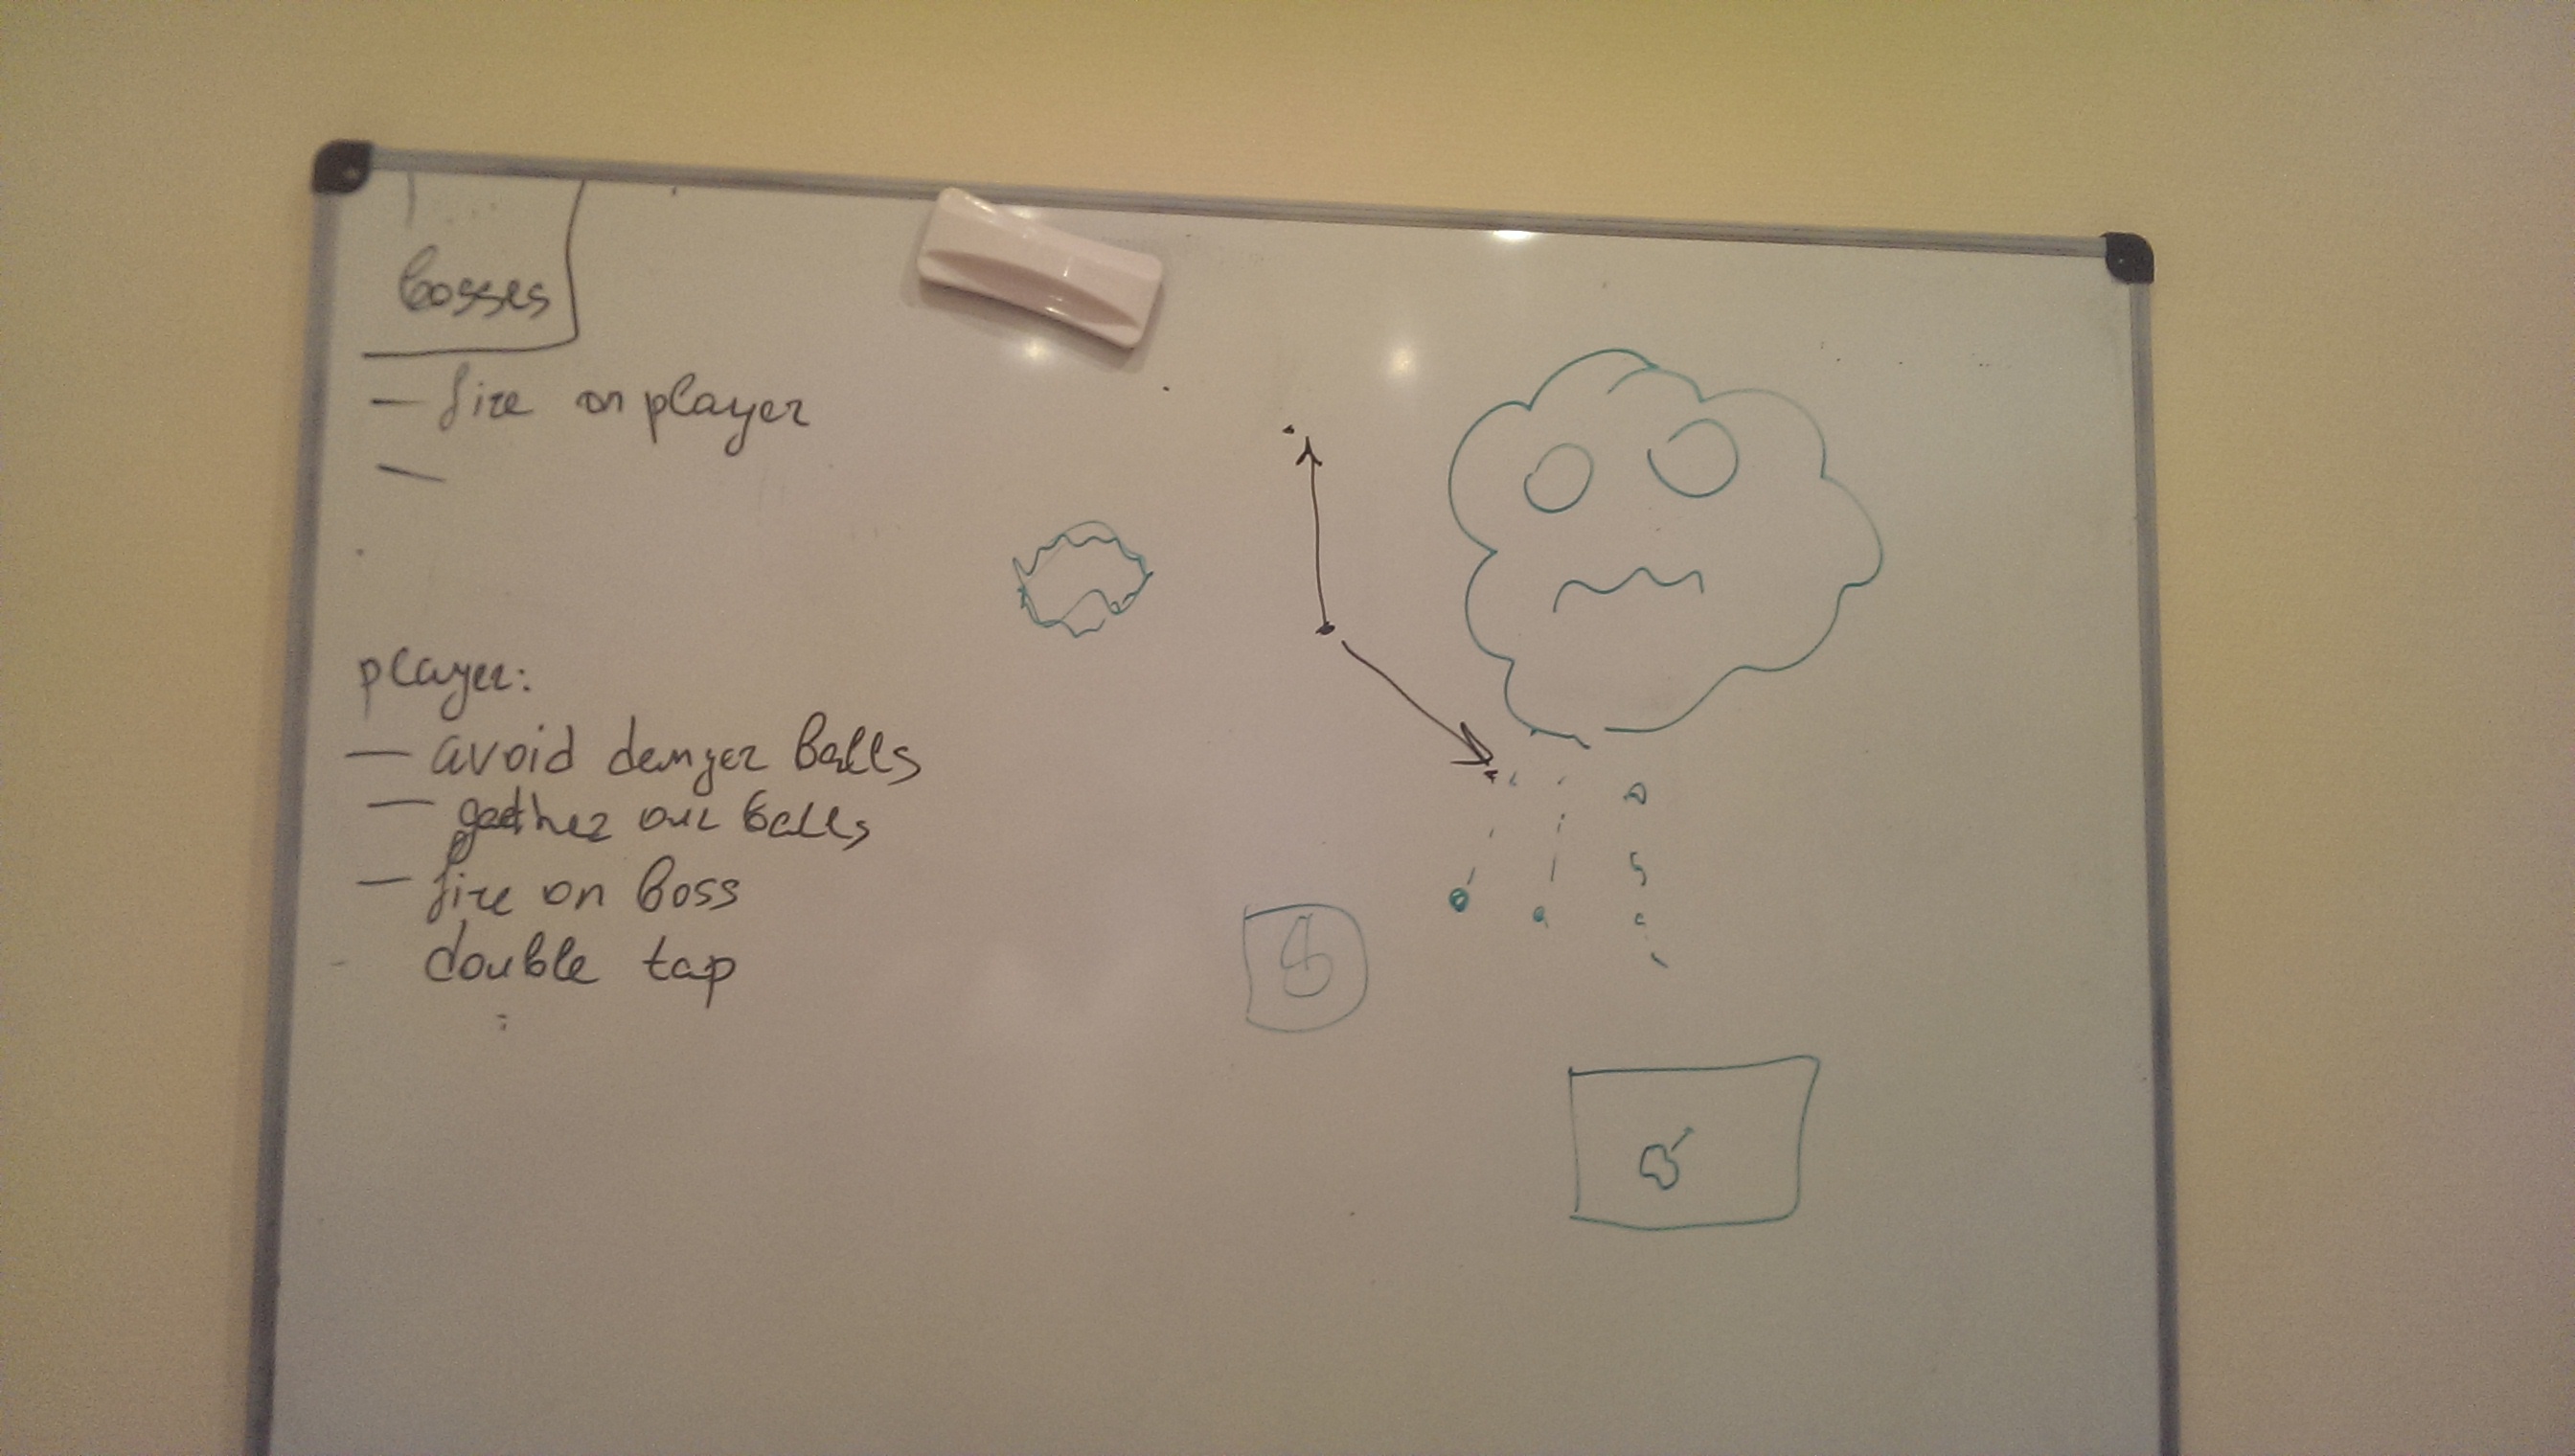 bosses
– fire on player
–
player:
– avoid denger balls
– gather our balls
– fire on boss
double tap